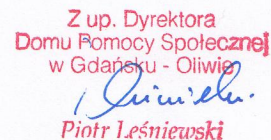 Z up. Dyrektora
Domu Pomocy Społecznej
w Gdańsku - Oliwie
Piotr Leśniewski